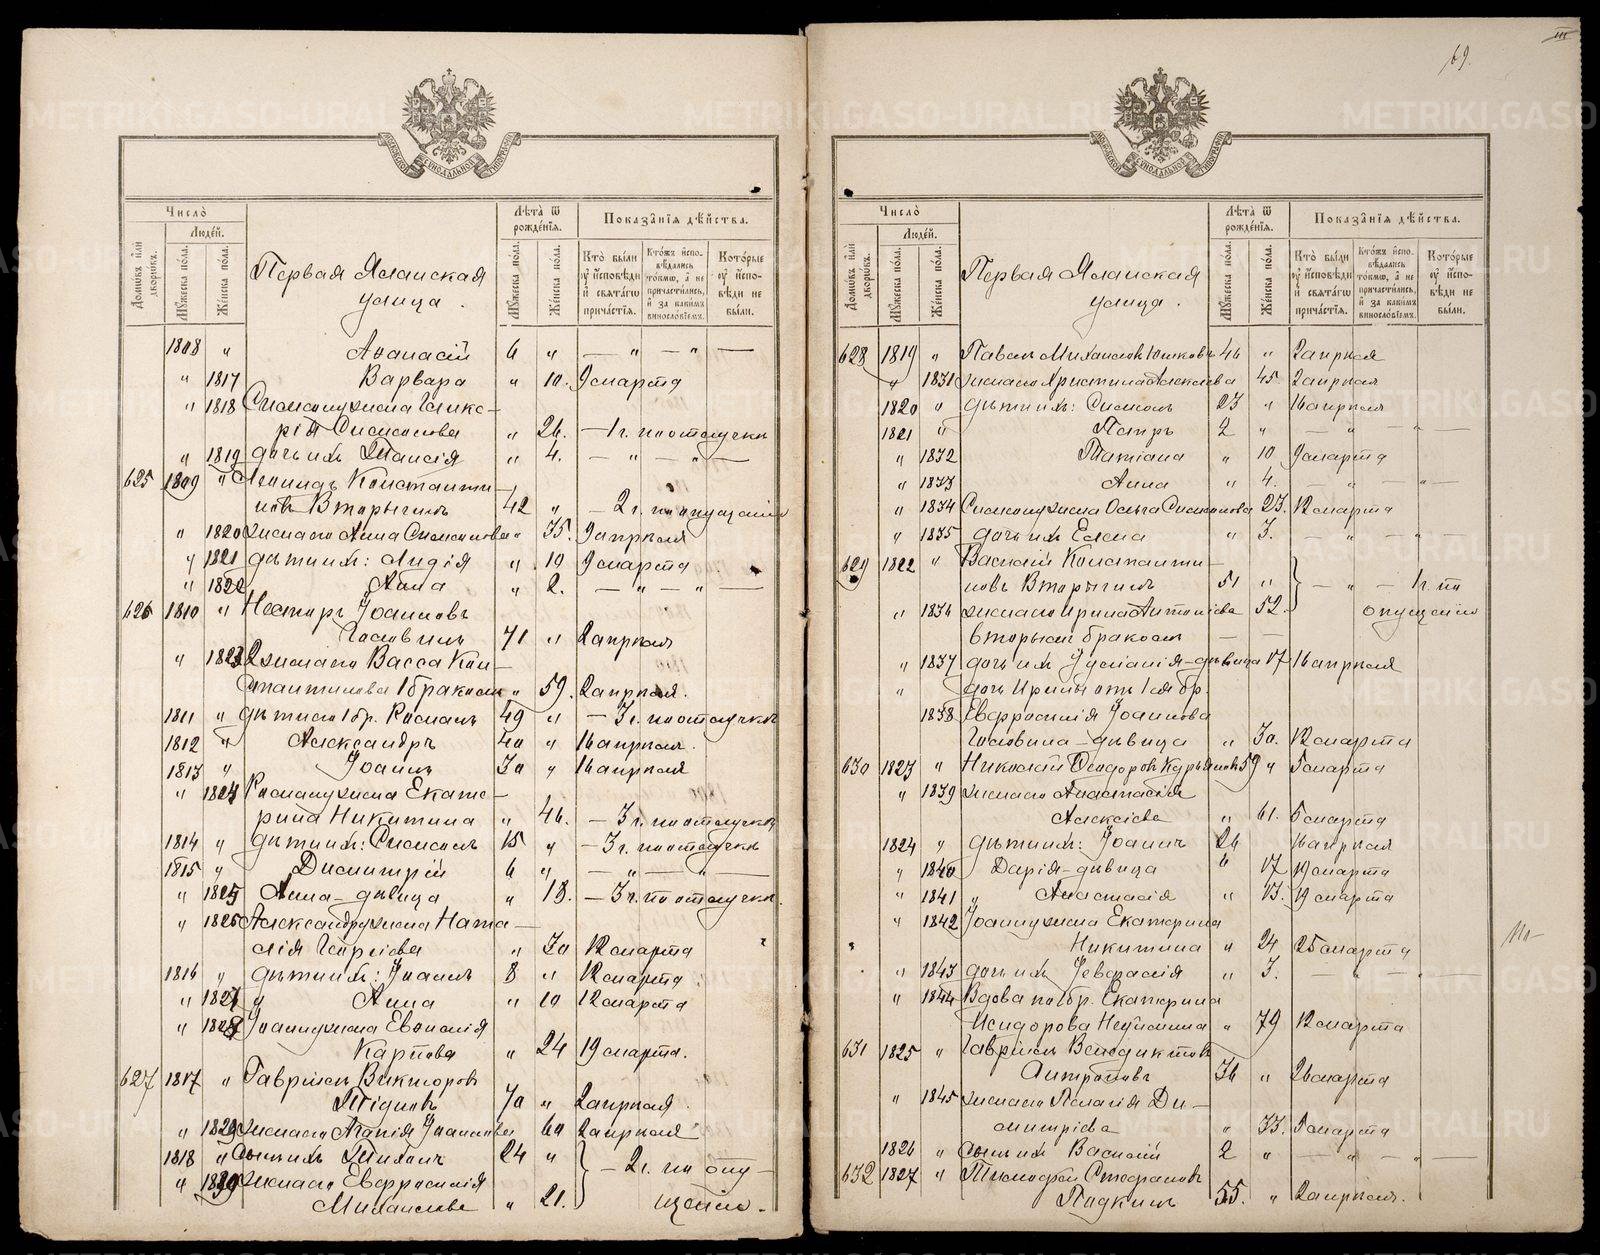 69.
Число̀
Людѐй.
Домѡвъ и҆лѝ дворѡвъ.
Мꙋжеска по́ла.
Же́нска по́ла.
Первая Ялапская
улица.
Лѣта̀ ѿ рожде́нїѧ.
Мꙋжеска по́ла.
Же́нска по́ла.
Показа̂нїѧ дѣ́йства.
Кто̀ бы́ли ᲂу҆ и҆сповѣди и҆ свѧта́гѡ прича́стїѧ.
Кто́жъ и҆сповѣдалсѧ то́кмѡ, а҆ не причасти́лсѧ, и҆ за каки́мъ винослѡ́вїемъ.
Кото́рые ᲂу҆ и҆сповѣди не бы́ли.
1808 " Аѳанасій 6 " — " — " —
" 1817 Варвара " 10. 9 марта
" 1818 Симеону жена Глике-
рія Симеонова " 26. — 1 г. по отлучкѣ
" 1819 дочь ихъ Таисія " 4. — " — " —
625 1809 " Леонидъ Константи-
новъ Вторыгинъ 42 " — 2 г. по опущенію
" 1820 жена его Анна Симеонова " 35. 9 апрѣля
" 1821 дѣти ихъ: Лидія " 10 9 марта
" 1822 Анна " 2. — " — " —
626 1810 " Несторъ Іоанновъ
Головинъ 71 " 2 апрѣля
" 1823 2 жена его Васса Кон-
стантинова 1 бракомъ " 59. 2 апрѣля.
1811 " дѣти его 1 бр. Романъ 49 " — 3 г. по отлучкѣ
1812 " Александръ 40 " 16 апрѣля.
1813 " Іоаннъ 30 " 16 апрѣля
" 1824 Роману жена Екате-
рина Никитина " 46. — 3 г. по отлучкѣ
1814 " дѣти ихъ: Симеонъ 15 " — 3 г. по отлучкѣ
1815 " Димитрій 6 " — " — " —
" 1825 Анна — дѣвица " 18. — 3 г. по отлучкѣ.
" 1826 Александру жена Ната-
лія Георгіева " 30 12 марта
1816 " дѣти ихъ: Іоаннъ 8 " 12 марта
" 1827 " Анна " 10 12 марта
" 1828 Іоанну жена Евѳимія
Карпова " 24 19 марта.
627 1817 " Гавріилъ Викторовъ
70 " 2 апрѣля
" 1829 жена его Агапія Іоаннова 60 2 апрѣля
1818 " сынъ ихъ Тихонъ 24 " — 2 г. по опу-
" 1830 жена его Евфросинія
Михаилова " 21. щенію.
Число̀
Людѐй.
Домѡвъ и҆лѝ дворѡвъ.
Мꙋжеска по́ла.
Же́нска по́ла.
Первая Ялапская
улица.
Лѣта̀ ѿ рожде́нїѧ.
Мꙋжеска по́ла.
Же́нска по́ла.
Показа̂нїѧ дѣ́йства.
Кто̀ бы́ли ᲂу҆ и҆сповѣди и҆ свѧта́гѡ прича́стїѧ.
Кото́рые ᲂу҆ и҆сповѣди не бы́ли.
628 1819 " Павелъ Михаиловъ Юшковъ 46 " 2 апрѣля
" 1831 жена его Христина Алексіева 45. 2 апрѣля
1820 " дѣти ихъ: Симеонъ 23 " 16 апрѣля
1821 " Петръ 2 " — " — " —
" 1832 Татіана " 10 9 марта
" 1833 Анна " 4. — " — " —
" 1834 Симеону жена Ольга Симеонова 23. 12 марта
" 1835 дочь ихъ Елена " 3. — " — " —
629 1822 " Василій Константи-
новъ Вторыгинъ 51 " — " — 1 г. по
" 1836 жена его Ирина Антоніева 52. опущенію
вторымъ бракомъ — —
" 1837 дочь ихъ — дѣвица 17 16 апрѣля
" дочь Ирины отъ 1 бр.
1838 Евфросинія Іоаннова
Головина — дѣвица " 30. 12 марта
630 1823 " Николай Ѳеодоровъ 59 " 5 марта
" 1839 жена его Анастасія
Алексіева " 61. 5 марта
1824 " дѣти ихъ: Іоаннъ 26 16 апрѣля
" 1840 Дарія — дѣвица " 17 19 марта
" 1841 " Анастасія " 13. 19 марта
" 1842 Іоанну жена Екатерина
Никитина " 24 25 марта
" 1843 дочь ихъ " 3. " — " —
" 1844 Вдова по бр. Екатерина
Исидорова " 79 12 марта
631 1825 " Гавріилъ Венедиктовъ
Антроповъ 36 " 26 марта
" 1845 жена его Пелагія Ди-
митріева " 33. 5 марта
1826 " сынъ ихъ Василій 2 " — " — " —
632 1827 " Тимоѳей Стефановъ
Падкинъ 55. " 2 апрѣля.
METRIKI.GASO-URAL.RU